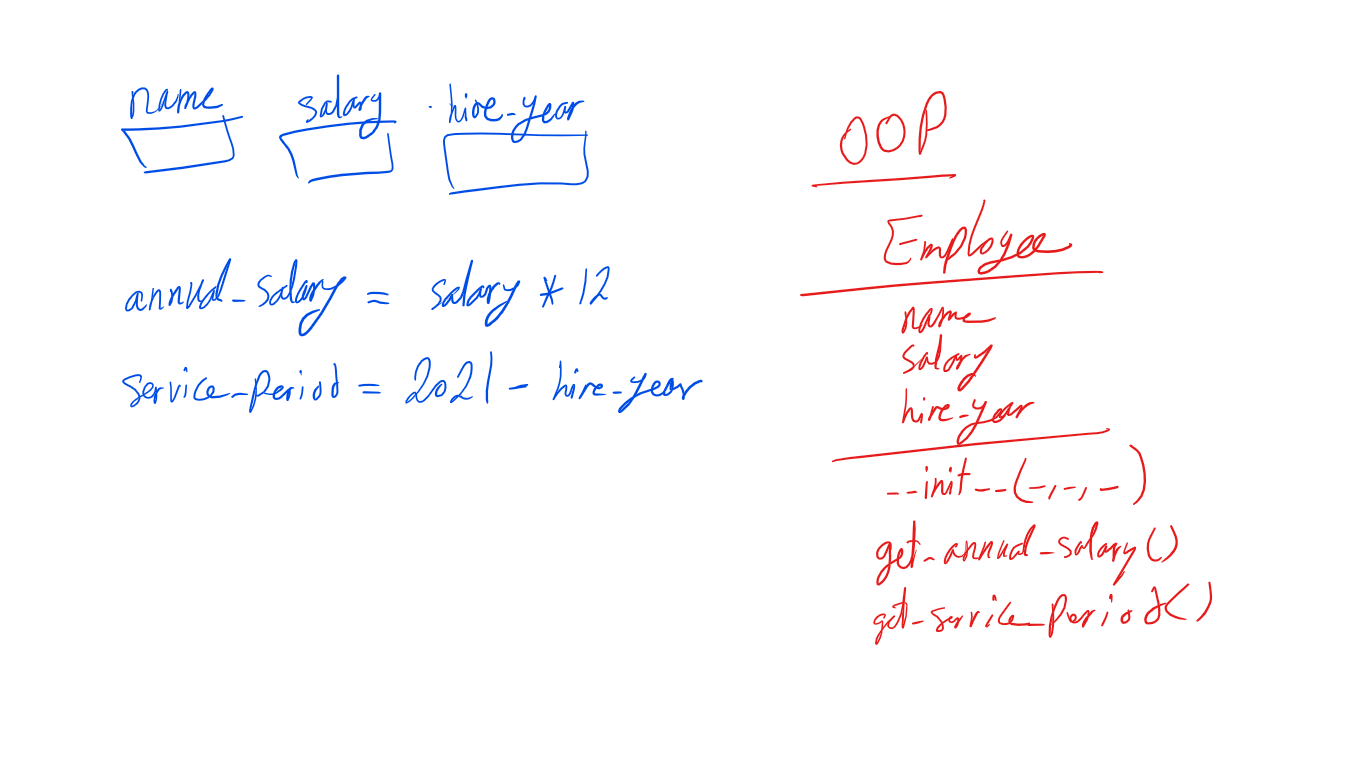 name salary hire_year
annual_salary = salary * 12
service_period = 2021 - hire_year
OOP
Employee
name
salary
hire_year
__init__(_,_,_)
get_annual_salary()
get_service_period()